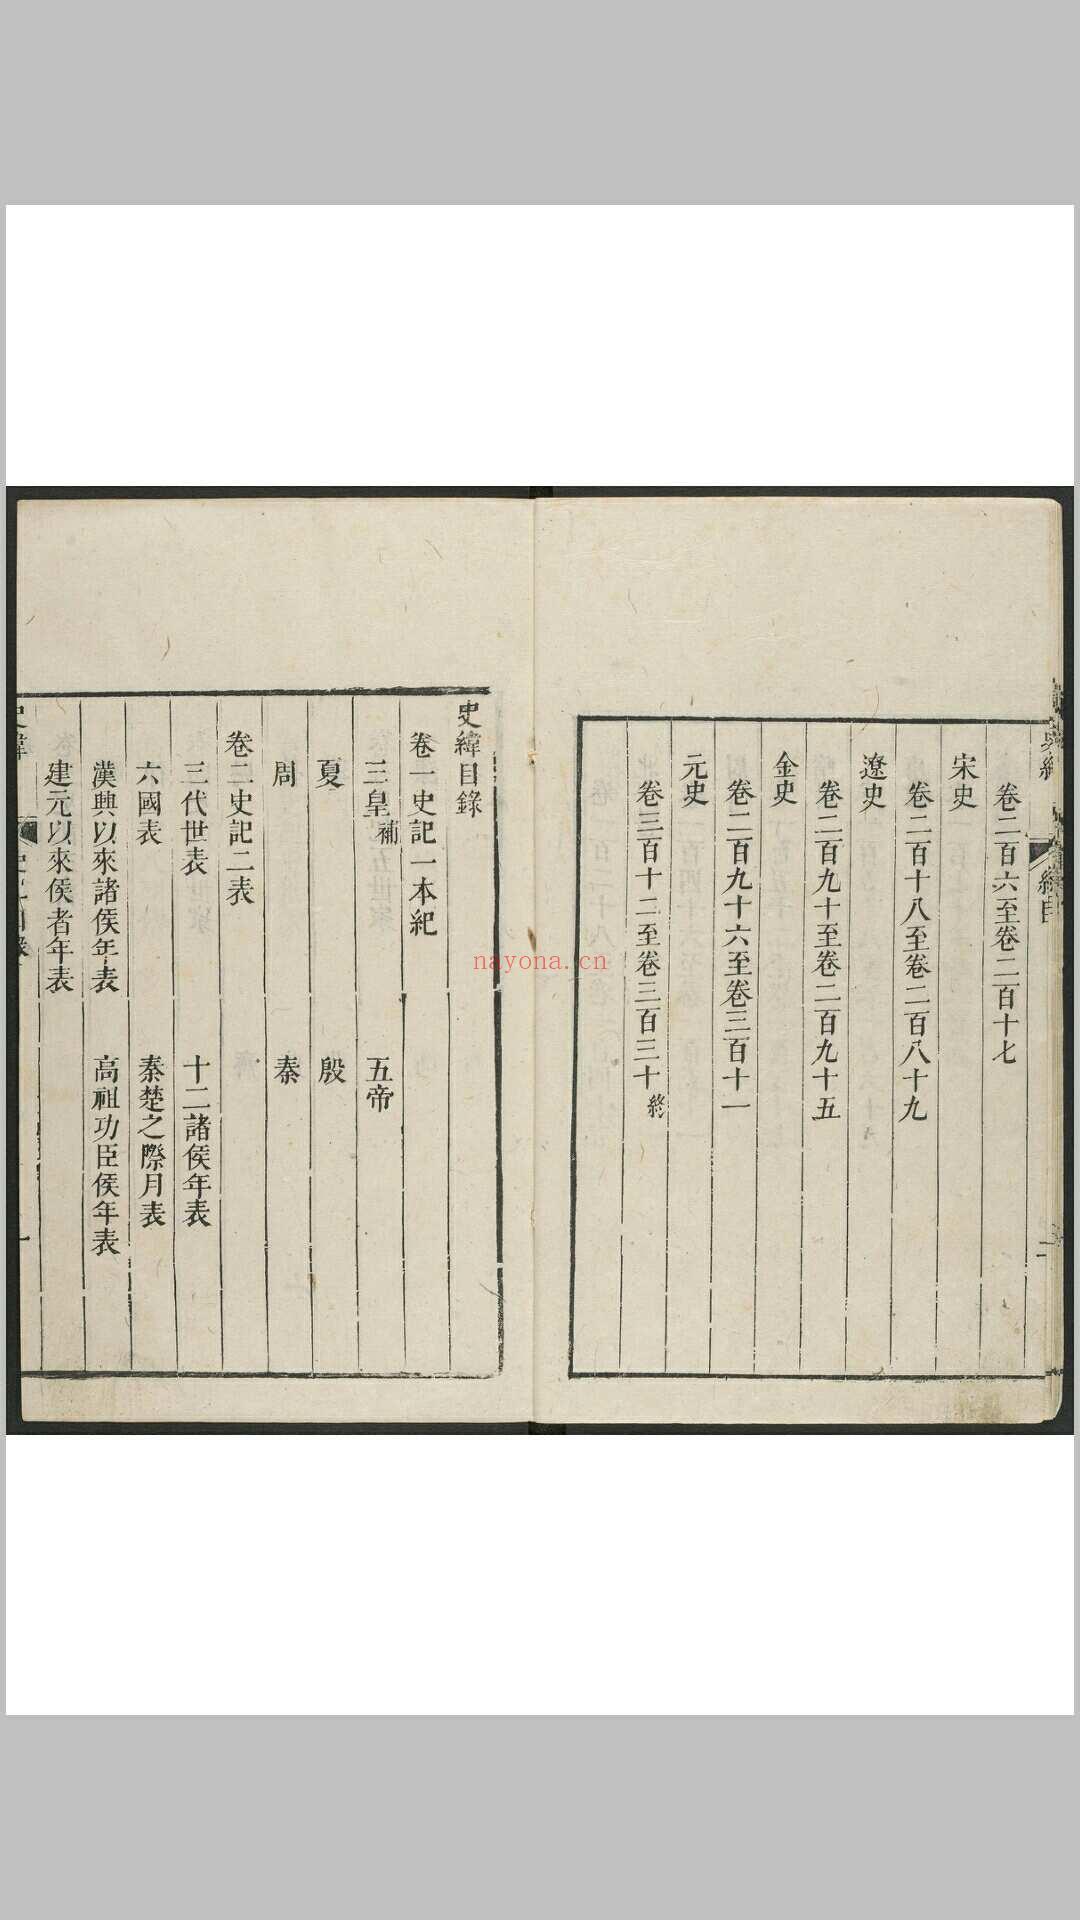 卷二百六至卷二百十七
宋史
卷二百十八至卷二百八十九
遼史
卷二百九十至卷二百九十五
金史
卷二百九十六至卷三百十一
元史
卷三百十二至卷三百三十終
史緯目錄
卷一史記一本紀
三皇補 五帝
夏 殷
周 秦
卷二史記二表
三代世表 十二諸侯年表
六國表 秦楚之際月表
漢興以來諸侯年表 高祖功臣侯年表
建元以來侯者年表
nayona.cn